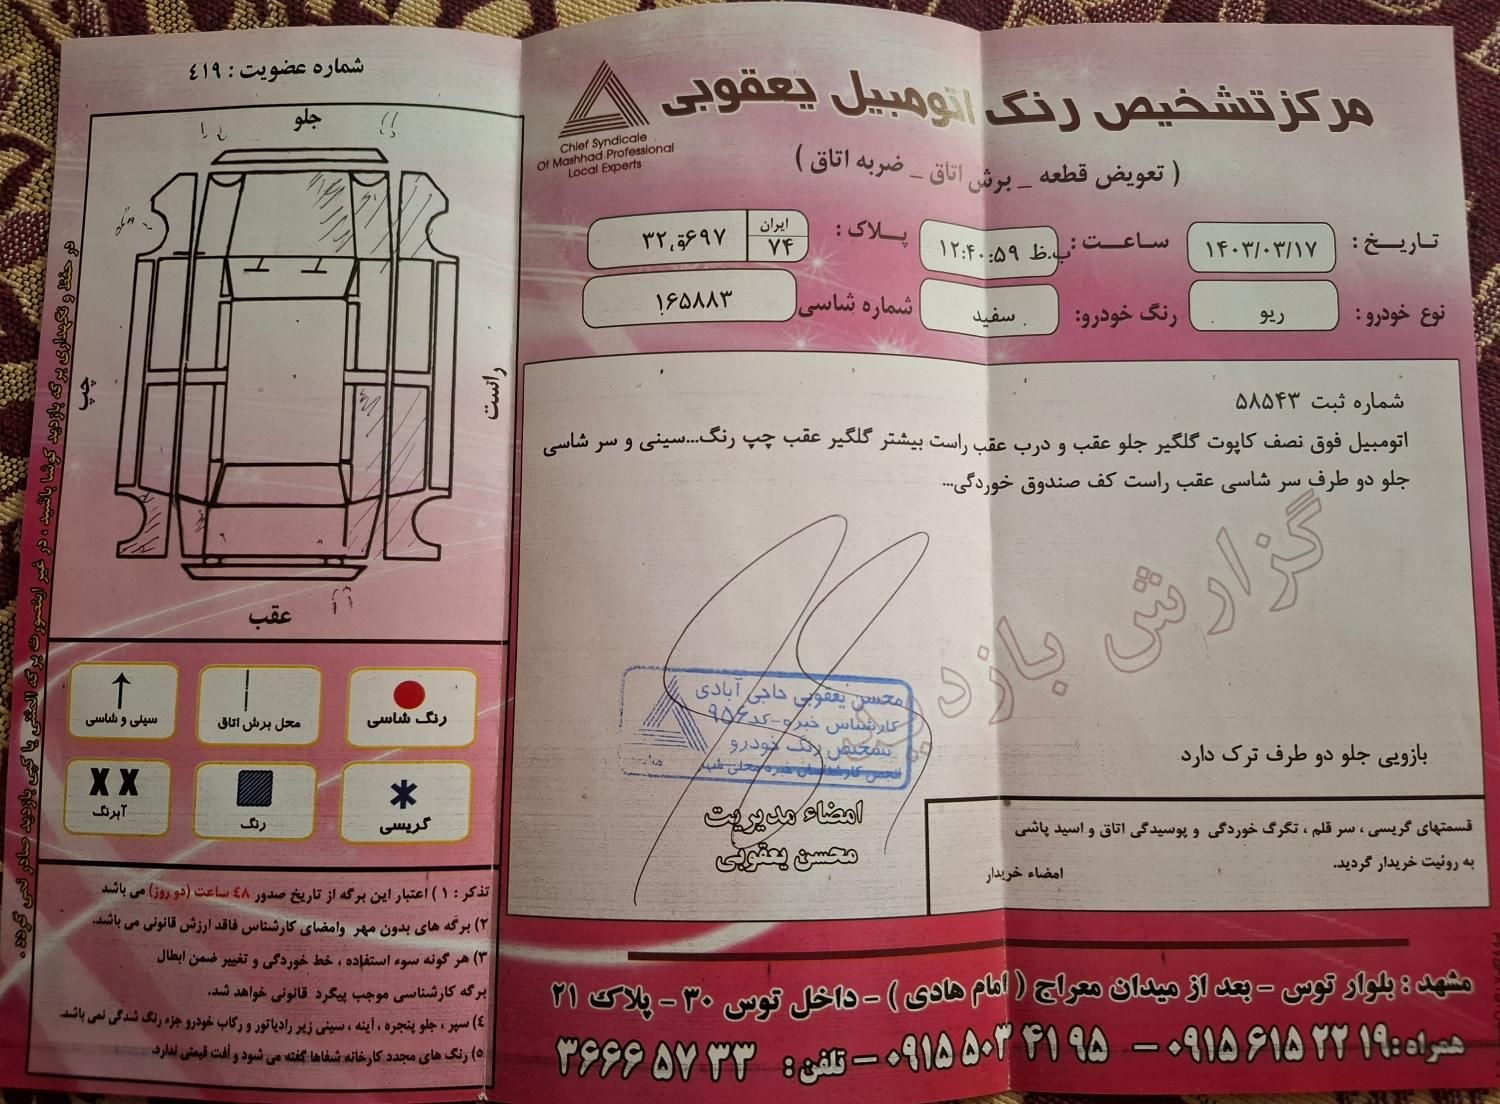 مرکز تشخیص رنگ اتومبیل یعقوبی
Chief Syndicale
Of Mashhad Professional
Local Experts
( تعویض قطعه _ برش اتاق _ ضربه اتاق )
تاریخ : ۱۴۰۳/۰۳/۱۷ ساعت : ۱۲:۴۰:۵۹ ب.ظ پلاک : ایران ۷۴ ۶۹۷ق۳۲
نوع خودرو : ریو رنگ خودرو: سفید شماره شاسی ۱۶۵۸۸۳
شماره ثبت ۵۸۵۴۳
اتومبیل فوق نصف کاپوت گلگیر جلو عقب و درب عقب راست بیشتر گلگیر عقب چپ رنگ...سینی و سر شاسی
جلو دو طرف سر شاسی عقب راست کف صندوق خوردگی...
گزارش بازدید
بازویی جلو دو طرف ترک دارد
محسن یعقوبی حاجی آبادی
کارشناس خبره-کد ۹۵۶
تشخیص رنگ خودرو
انجمن کارشناسان خبره محلی
امضاء مدیریت
محسن یعقوبی
قسمتهای گریسی ، سر قلم ، تگرگ خوردگی و پوسیدگی اتاق و اسید پاشی
به رونیت خریدار گردید.
امضاء خریدار
شماره عضویت : ٤۱۹
جلو
چپ
راست
عقب
رنگ شاسی
محل برش اتاق
سینی و شاسی
گریسی
رنگ
آبرنگ
تذکر : ۱ ) اعتبار این برگه از تاریخ صدور ٤۸ ساعت (دو روز) می باشد
۲) برگه های بدون مهر وامضای کارشناس فاقد ارزش قانونی می باشد.
۳) هر گونه سوء استفاده ، خط خوردگی و تغییر ضمن ابطال
برگه کارشناسی موجب پیگرد قانونی خواهد شد.
٤) سپر ، جلو پنجره ، آینه ، سینی زیر رادیاتور و رکاب خودرو جزء رنگ شدگی نمی باشد.
۵) رنگ های مجدد کارخانه شفاها گفته می شود و اُفت قیمتی ندارد.
در حفظ و نگهداری برگه بازدید کوشا باشید ، در غیر اینصورت برگه المثنی یا کپی بازدید صادر نمی گردد .
مشهد : بلوار توس - بعد از میدان معراج ( امام هادی ) - داخل توس ۳۰ - پلاک ۲۱
همراه : ۰۹۱۵ ۶۱۵ ۲۲ ۱۹ - ۰۹۱۵ ۵۰۳ ۴۱ ۹۵ - تلفن : ۳۶۶۶ ۵۷ ۳۳